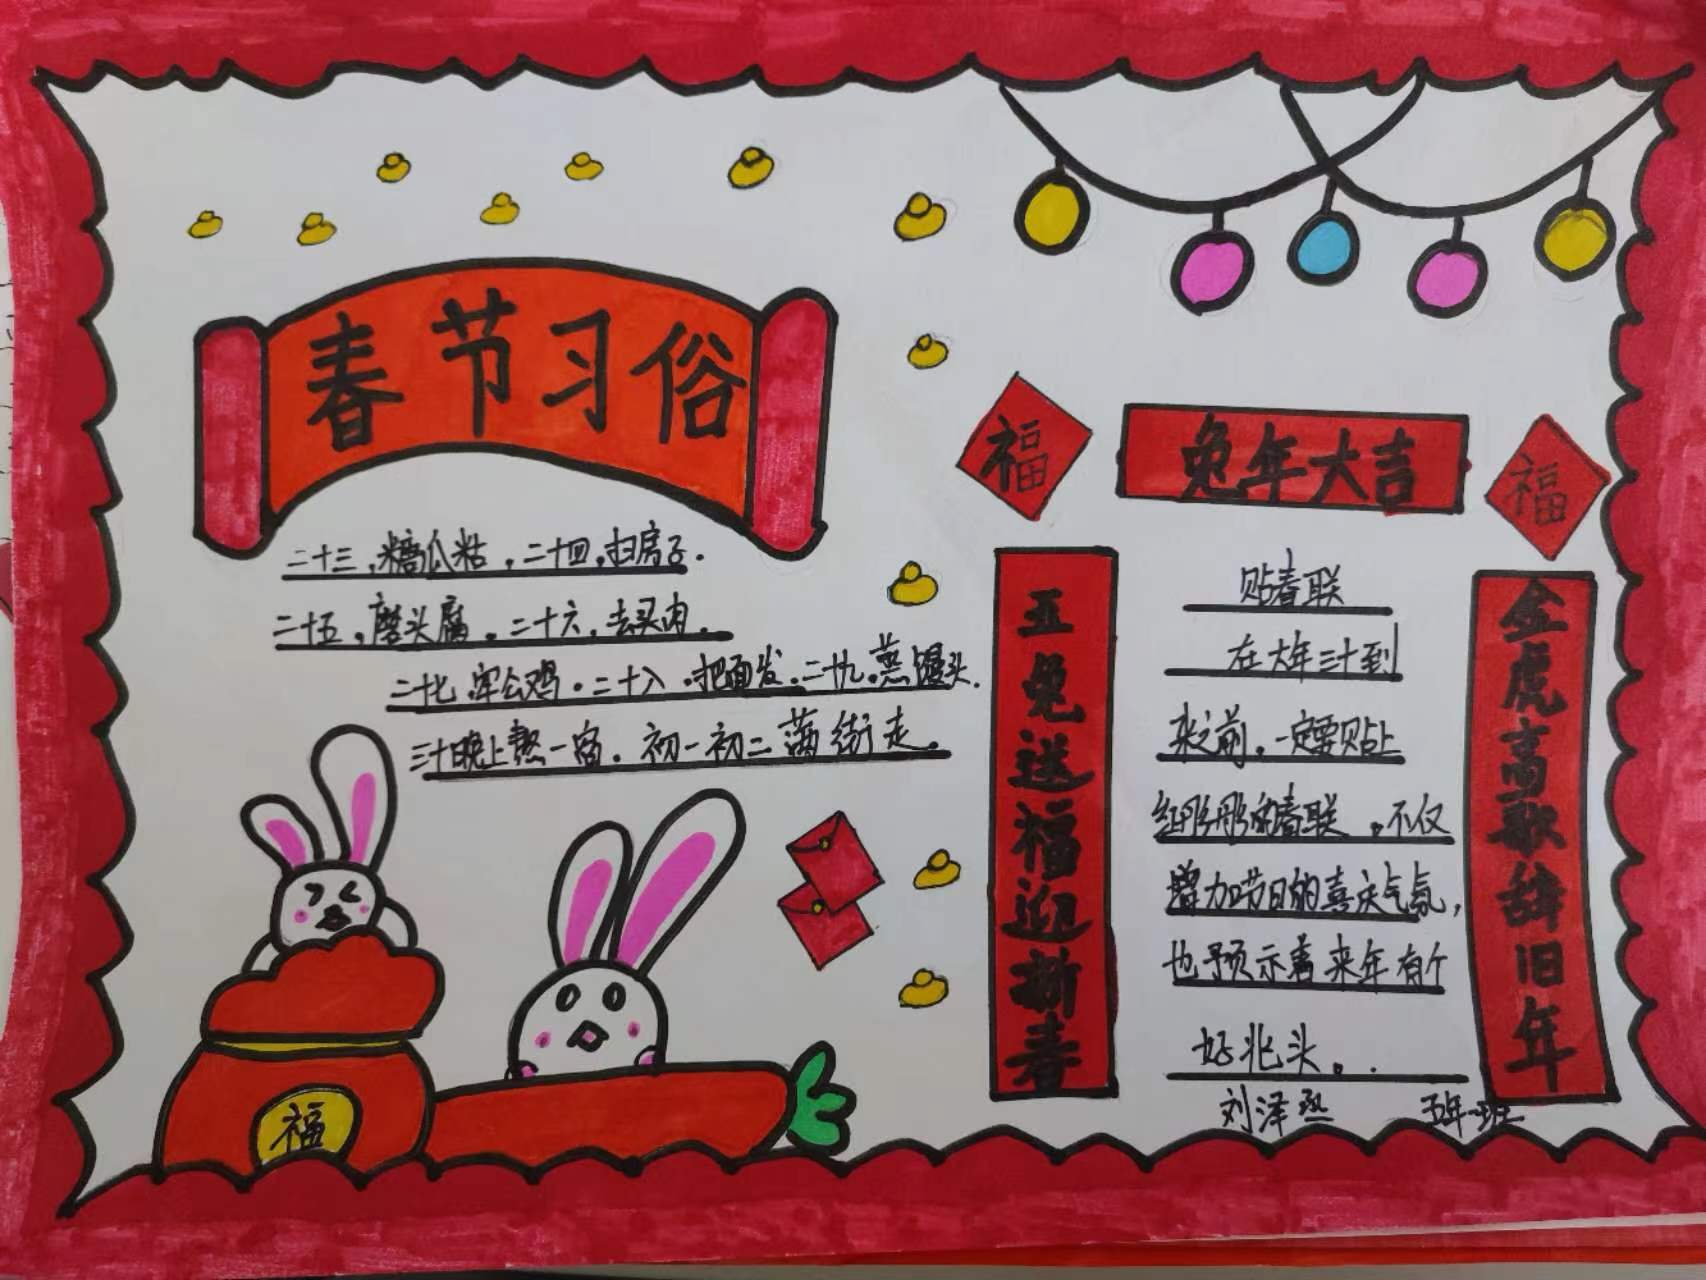 春节习俗
二十三，糖瓜粘，二十四，扫房子。
二十五，磨头腐，二十六，去买肉，
二十七，宰公鸡。二十八，把面发，二十九，蒸馒头。
三十晚上熬一宿。初一初二满街走。
福
福
兔年大吉
福
玉兔送福迎新春
贴春联
在大年三十到
来之前，一定要贴上
红彤彤的春联，不仅
增加节日的喜庆气氛，
也预示着来年有个
好兆头。
金虎高歌辞旧年
刘泽丞 五年一班